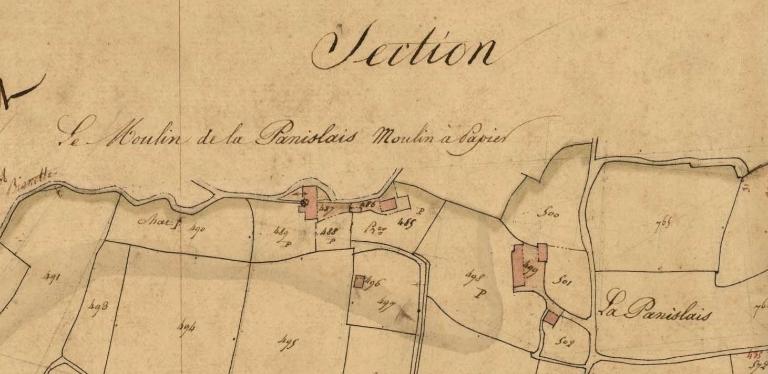 Section
Le Moulin de la Panislais Moulin à Papier
Binette
487
486
485
P
500
765
490
489
P
488
P
491
499
501
498
P
493
496
497
La Panislais
494
495
502